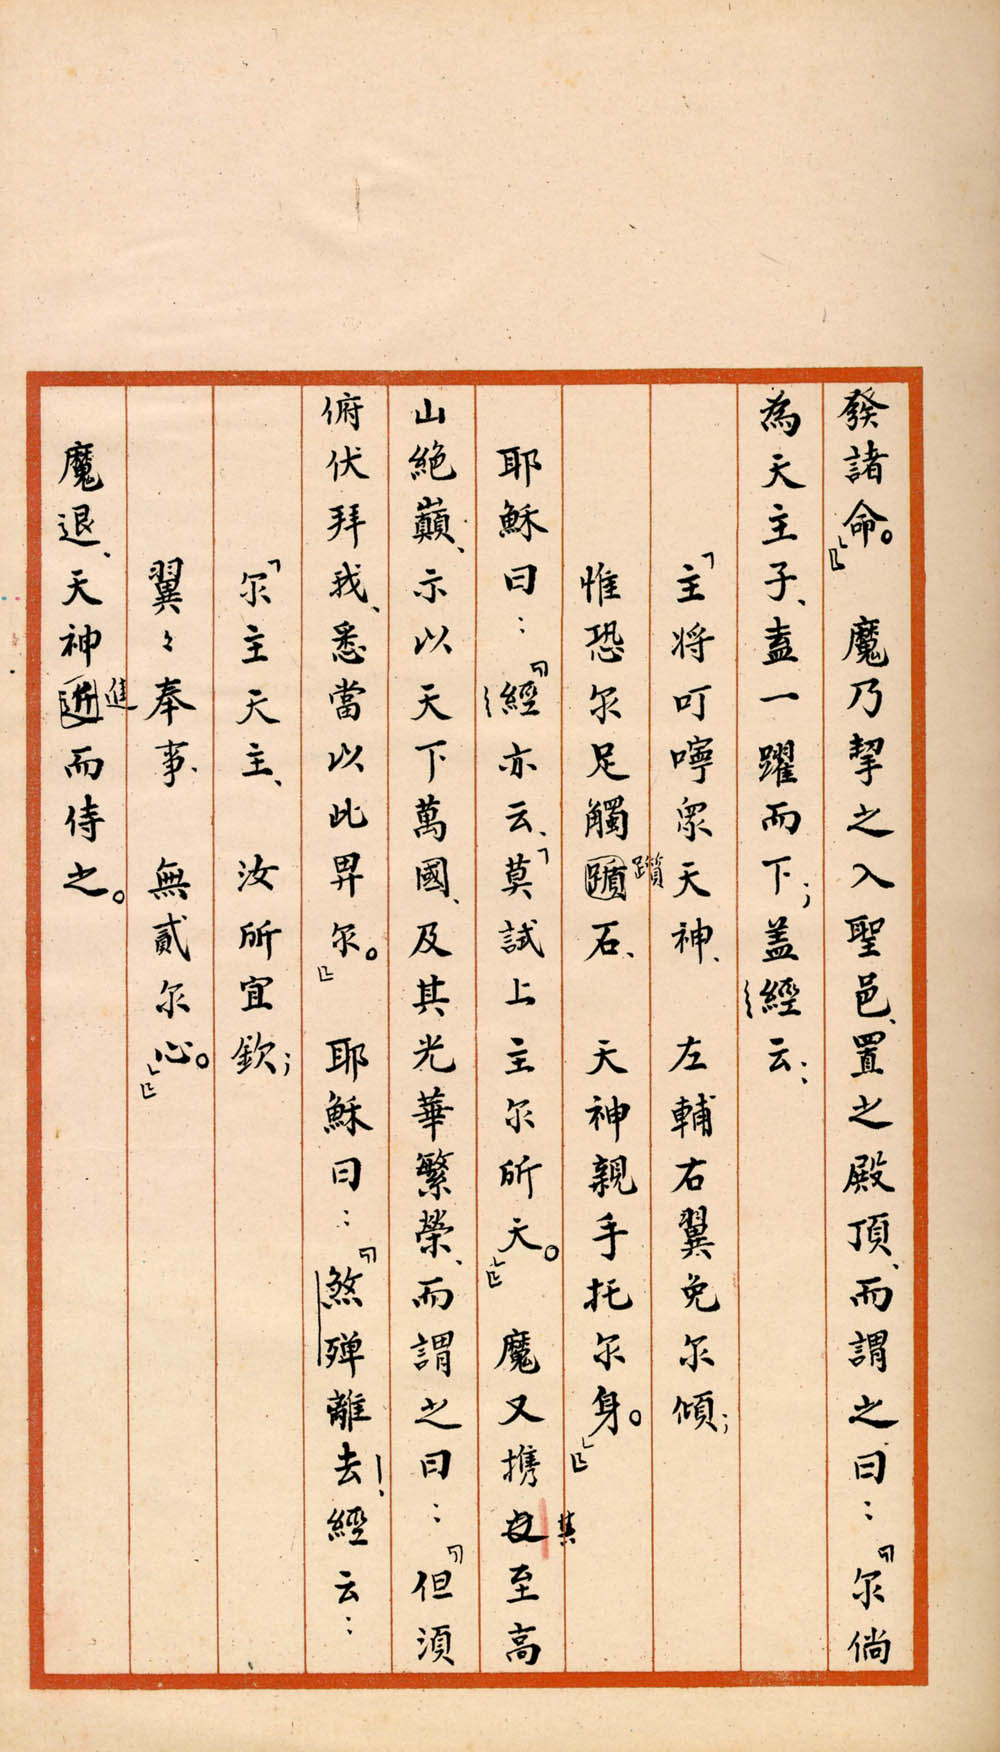 發諸命。』魔乃挈之入聖邑、置之殿頂、而謂之曰：『尔倘
為天主子、盍一躍而下；盖經云：
「主將叮嚀衆天神、左輔右翼免尔傾；
惟恐尔足觸躓石、天神親手托尔身。」』
躓
耶穌曰：『經亦云、「莫試上主尔所天。」』魔又携至高
其
山絶巔、示以天下萬國、及其光華繁榮、而謂之曰：『但須
俯伏拜我、悉當以此畀尔。』耶穌曰：『煞殫離去！經云：
「尔主天主、汝所宜欽；
翼々奉事、無貳尔心。」』
魔退、天神而侍之。
進